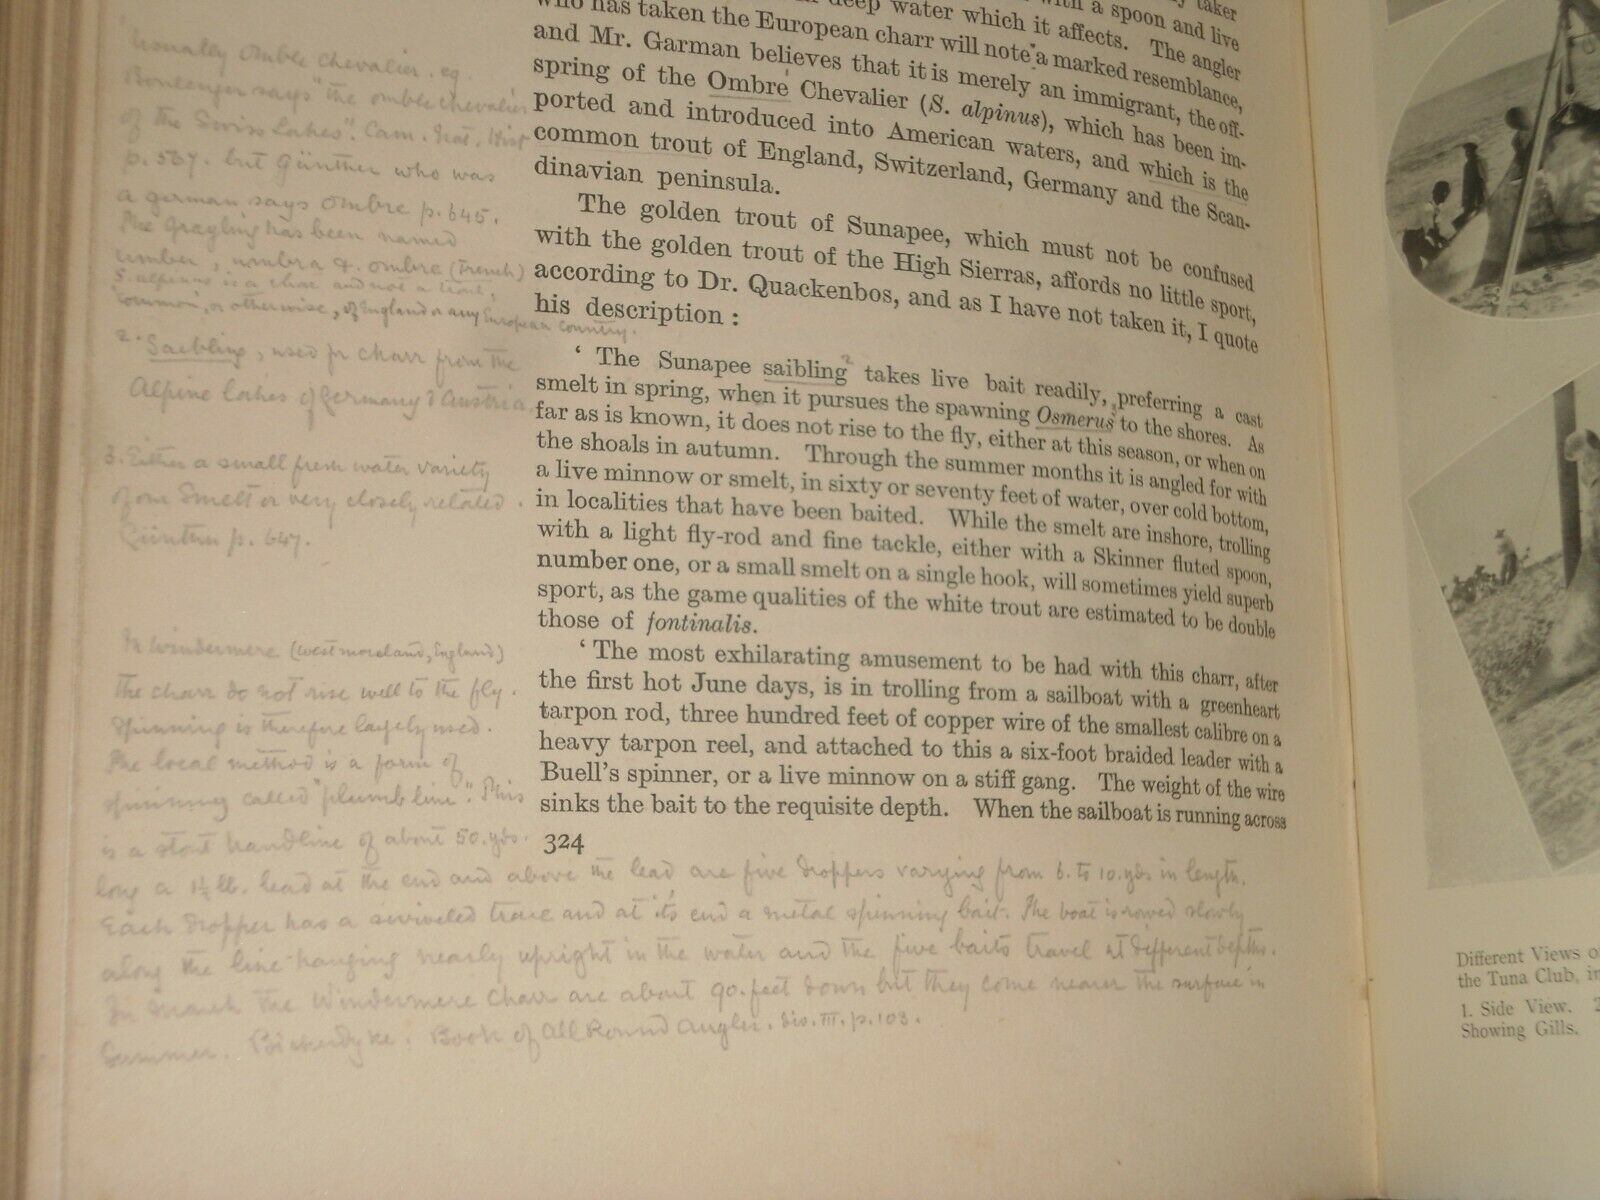 taker
with a spoon and live
deep water which it affects. The angler
who has taken the European charr will note a marked resemblance,
and Mr. Garman believes that it is merely an immigrant, the off-
spring of the Ombre Chevalier (S. alpinus), which has been im-
ported and introduced into American waters, and which is the
common trout of England, Switzerland, Germany and the Scan-
dinavian peninsula.
The golden trout of Sunapee, which must not be confused
with the golden trout of the High Sierras, affords no little sport,
according to Dr. Quackenbos, and as I have not taken it, I quote
his description :
‘ The Sunapee saibling 2 takes live bait readily, preferring a cast
smelt in spring, when it pursues the spawning Osmerus 3 to the shores. As
far as is known, it does not rise to the fly, either at this season, or when on
the shoals in autumn. Through the summer months it is angled for with
a live minnow or smelt, in sixty or seventy feet of water, over cold bottom,
in localities that have been baited. While the smelt are inshore, trolling
with a light fly-rod and fine tackle, either with a Skinner fluted spoon,
number one, or a small smelt on a single hook, will sometimes yield superb
sport, as the game qualities of the white trout are estimated to be double
those of fontinalis.
‘ The most exhilarating amusement to be had with this charr, after
the first hot June days, is in trolling from a sailboat with a greenheart
tarpon rod, three hundred feet of copper wire of the smallest calibre on a
heavy tarpon reel, and attached to this a six-foot braided leader with a
Buell's spinner, or a live minnow on a stiff gang. The weight of the wire
sinks the bait to the requisite depth. When the sailboat is running across
324
Usually Omble Chevalier. eg.
Boulenger says "the omble chevalier
of the Swiss Lakes". Cam. Nat. Hist
p. 567. but Günther who was
a german says Ombre p. 645.
The Grayling has been named
umber, umbra & ombre (French)
S. alpinus is a char and not a trout,
'common', or otherwise, of England or any European country.
2. Saibling, used for charr from the
Alpine lakes of Germany & Austria
3. Either a small fresh water variety
of our Smelt or very closely related.
Günther p. 647.
In Windermere (Westmoreland, England)
the charr do not rise well to the fly.
Spinning is therefore largely used.
The local method is a form of
spinning called "plumb line". This
is a stout handline of about 50. yds.
long a 1½ lb. lead at the end and above the lead are five droppers varying from 6. to 10. yds in length.
Each dropper has a swiveled trace and at its end a metal spinning bait. The boat is rowed slowly
along the line hanging nearly upright in the water and the five baits travel at different depths.
In March the Windermere Charr are about 90. feet down but they come nearer the surface in
Summer. Bickerdyke. Book of All Round Angler. div. III. p. 103.
Different Views o
the Tuna Club, in
1. Side View. 2
Showing Gills.